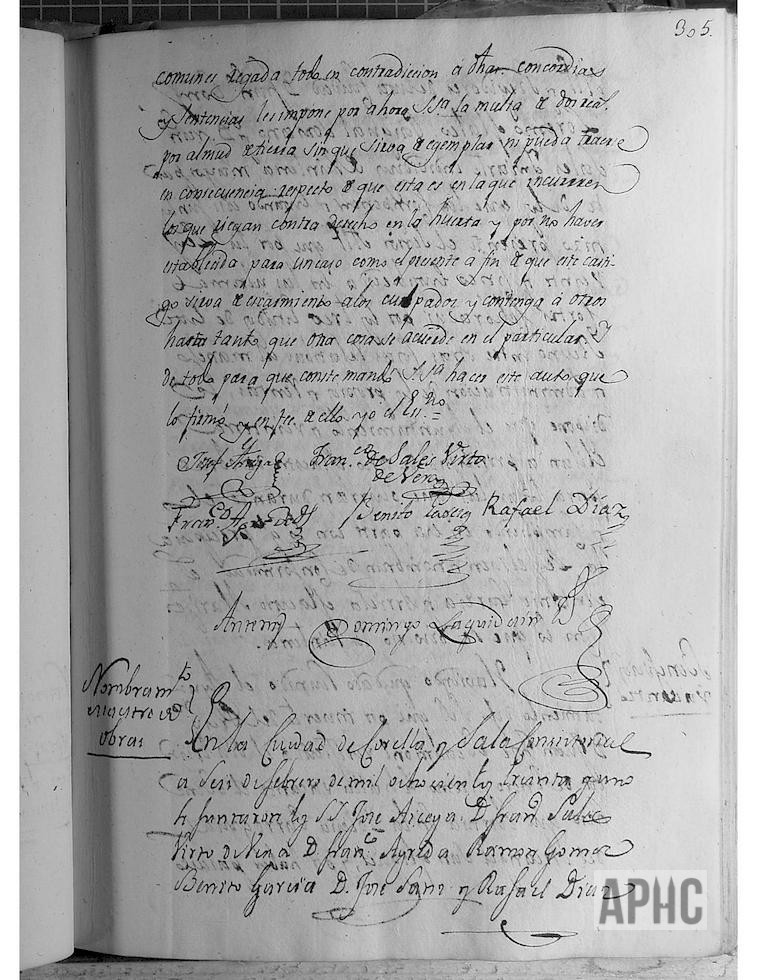 305.
comunes regada todo en contradiccion a dhas concordias
y sentencias les impone por ahora S.Sa la multa de dos real.
por almud de tierra sin que sirva de ejemplar ni pueda traerse
en consecuencia respecto de que esta es en la que incurren
los que riegan contra derecho en la huerta y por no haver
establecida para un caso como el presente a fin de que este casti-
go sirva de escarmiento a los culpados y contenga a otros
hasta tanto que otra cosa se acuerde en el particular. Y
de todo para que conste mandó S.Sa hacer este auto que
lo firmó y en fee de ello yo el Essno =
Josef Franco de Sales Virto
de Vera
Franco Benito Rafael Diaz
Antemi Domingo Laquidain
Nombramto
Maestro de
obras
En la Ciudad de Corella y Sala Consistorial
a Seis de febrero de mil ochocientos treinta y uno
se juntaron los SS. Jose Arigya D. Franco Sales
Virto de Vera D. Franco Agreda Ramon Gomez
Benito Garcia D. Jose Sanz y Rafael Diaz
APHC